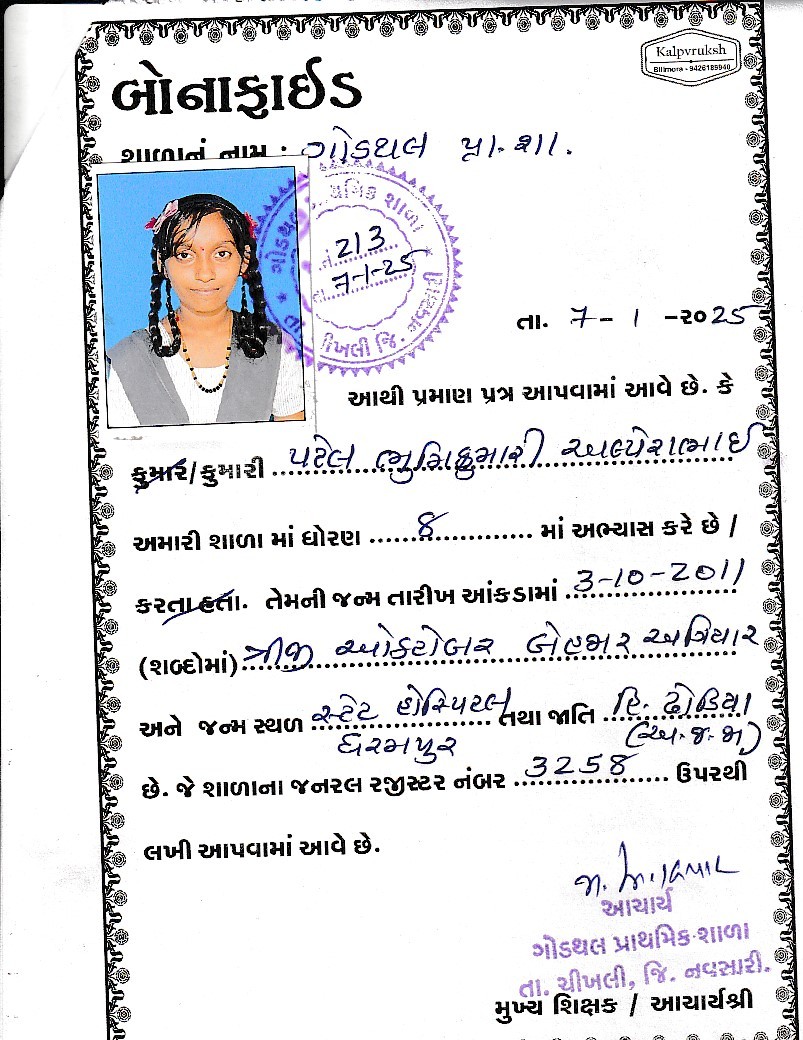 Kalpvruksh
Bilimora - 9426189940
બોનાફાઈડ
શાળાનું નામ : ગોડથલ પ્રા. શા.
ગોડથલ પ્રાથમિક શાળા
નં 213
તા. 7-1-25
તા. ચીખલી જિ. નવસારી
તા. 7 - 1 -૨૦25
આથી પ્રમાણ પત્ર આપવામાં આવે છે. કે
કુમાર/કુમારી પટેલ ભુમિકુમારી અલ્પેશભાઈ
અમારી શાળા માં ધોરણ 8 માં અભ્યાસ કરે છે /
કરતા હતા. તેમની જન્મ તારીખ આંકડામાં 3-10-2011
(શબ્દોમાં) ત્રીજી ઓક્ટોબર બેહજાર અગિયાર
અને જન્મ સ્થળ સ્ટેટ હોસ્પિટલ તથા જાતિ હિ. ઢોડિયા
ધરમપુર (અ.જ.જા)
છે. જે શાળાના જનરલ રજીસ્ટર નંબર 3258 ઉપરથી
લખી આપવામાં આવે છે.
આચાર્ય
ગોડથલ પ્રાથમિક શાળા
તા. ચીખલી, જિ. નવસારી.
મુખ્ય શિક્ષક / આચાર્યશ્રી